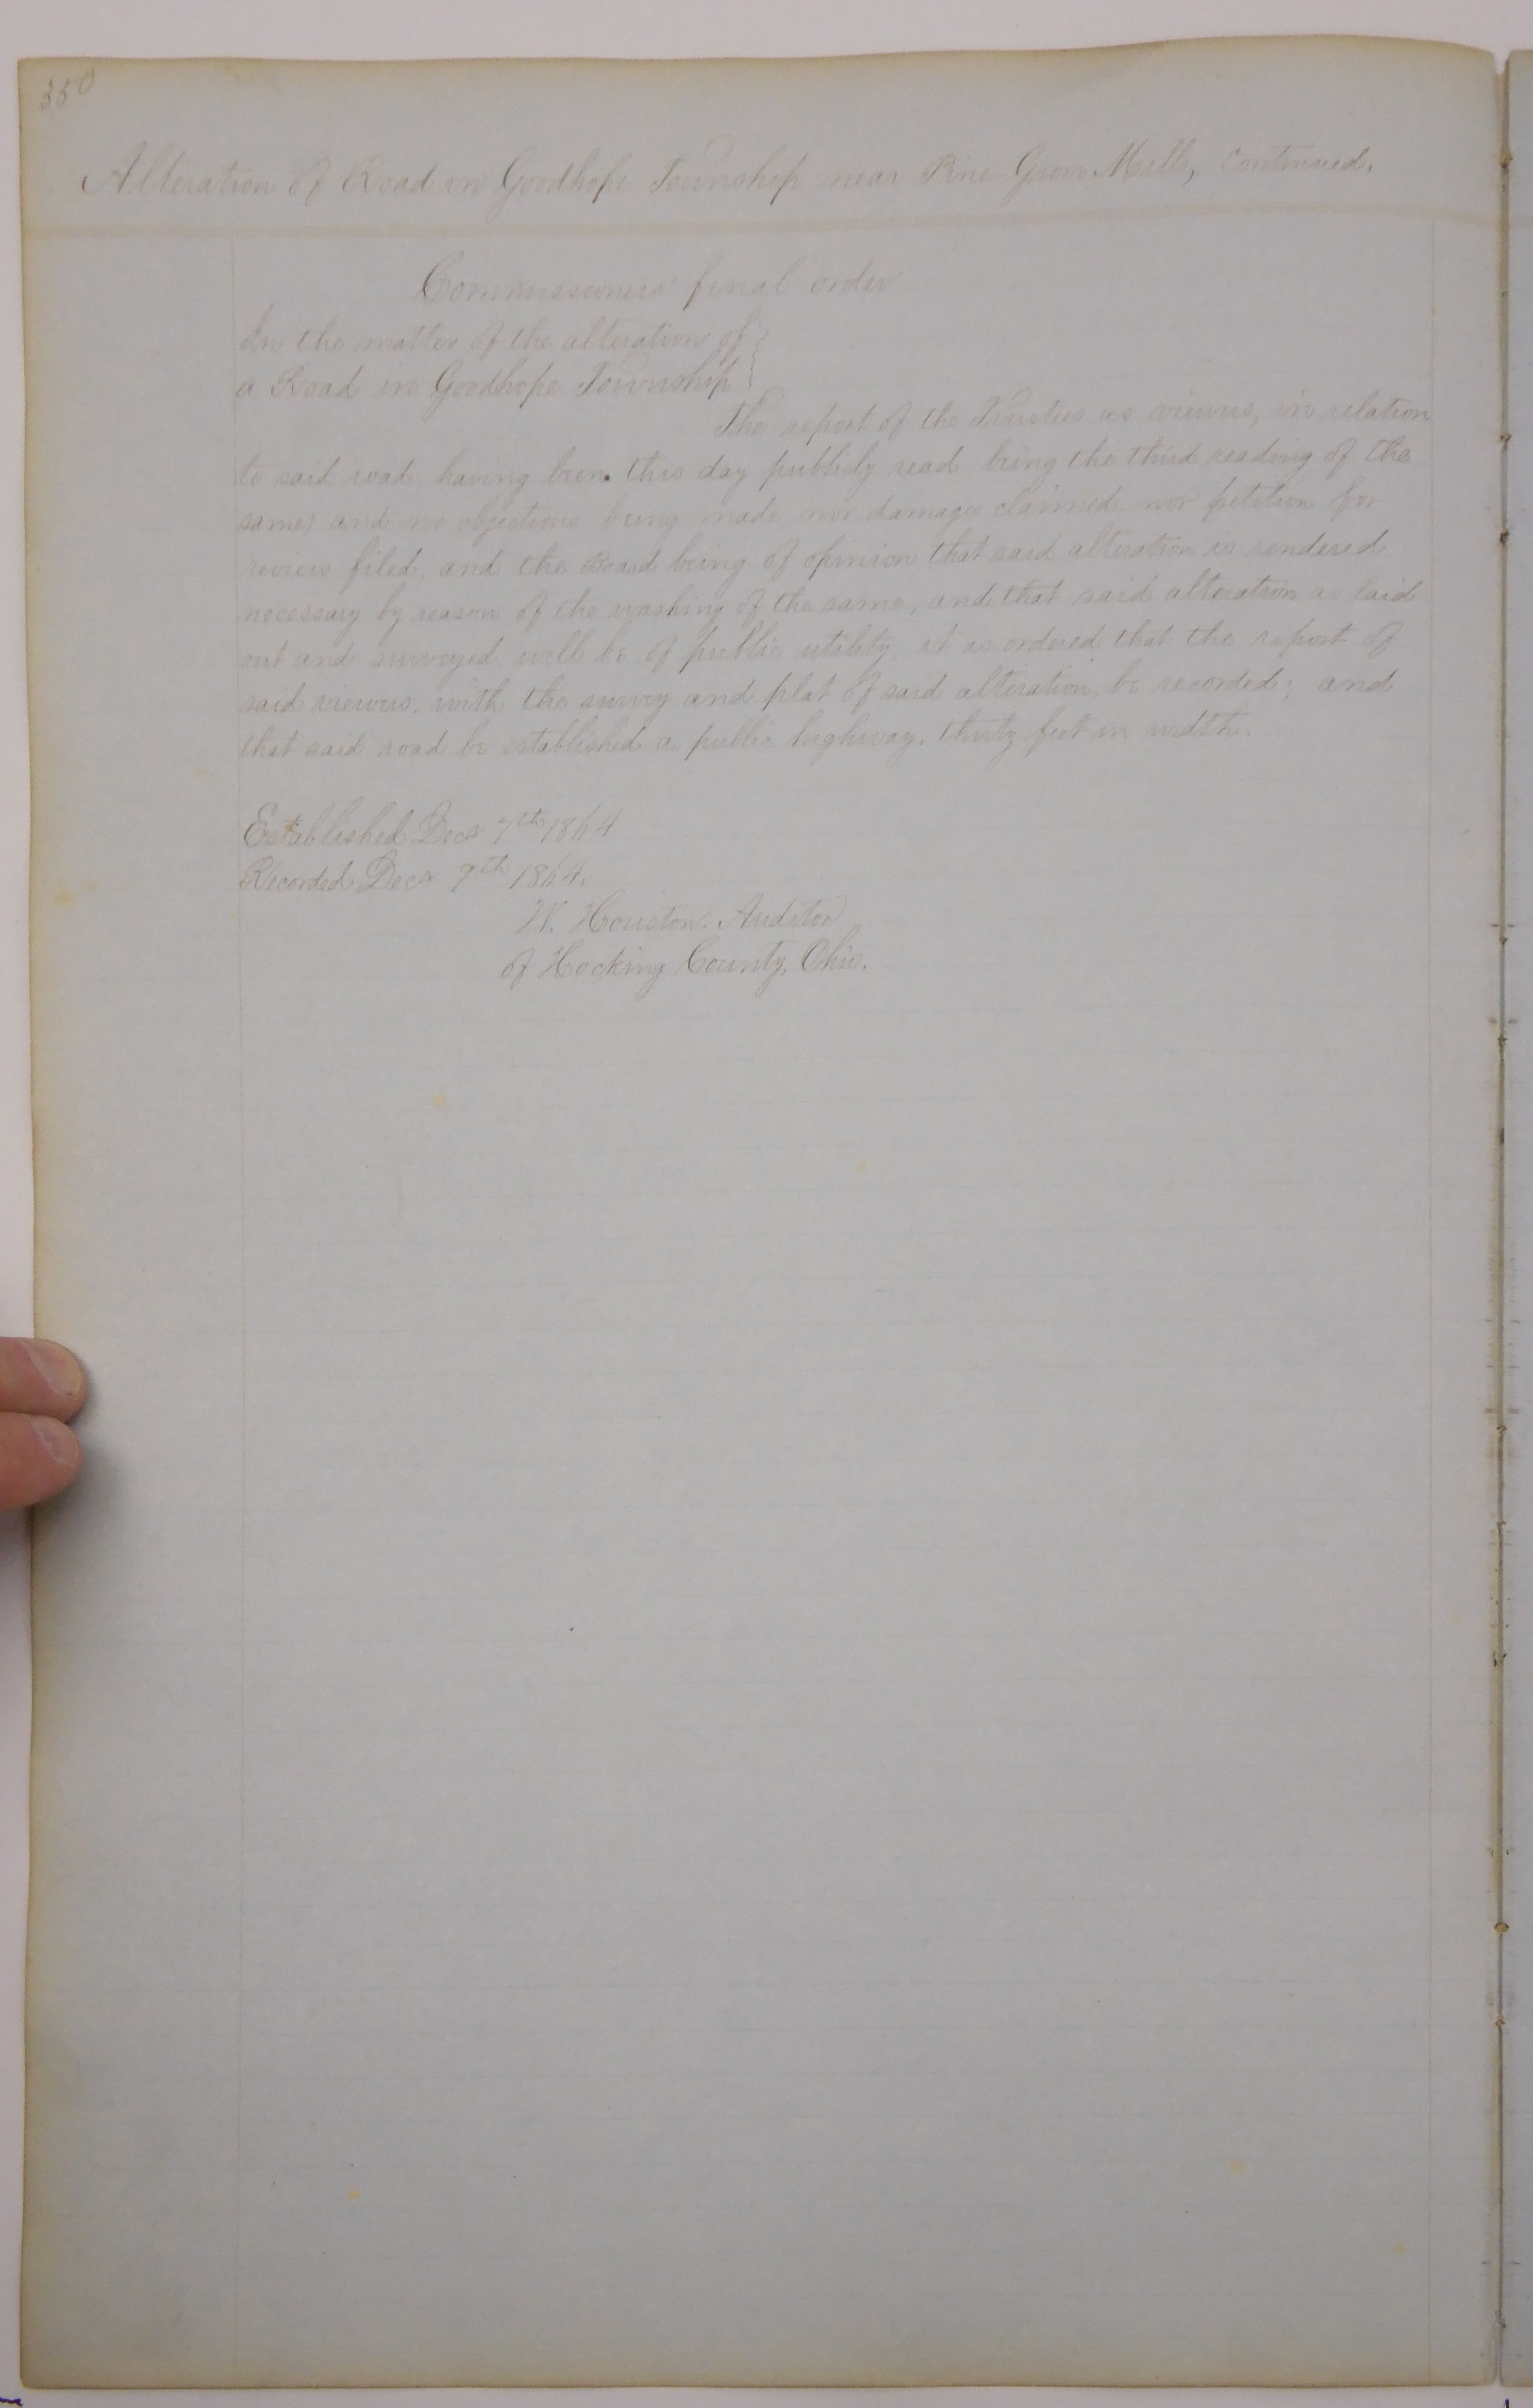 350
Alteration of Road in Goodhope Township near Pine Grove Mills, Continued.
Commissioners' final order
In the matter of the alteration of }
a Road in Goodhope Township }
The report of the Trustees as viewers, in relation
to said road, having been this day publicly read being the third reading of the
same, and no objections being made, nor damages claimed, nor petition for
review filed, and the Board being of opinion that said alteration is rendered
necessary by reason of the washing of the same, and that said alteration as laid
out and surveyed, will be of public utility, it is ordered that the report of
said viewers, with the survey and plat of said alteration, be recorded; and
that said road be established a public highway, thirty feet in width.
Established Decr 7th 1864
Recorded Decr 9th 1864.
W. Houston, Auditor
of Hocking County, Ohio.